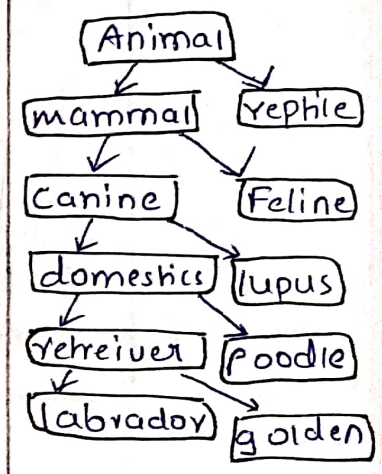 Animal
mammal reptile
Canine Feline
domestics lupus
retreiver Poodle
labrador golden